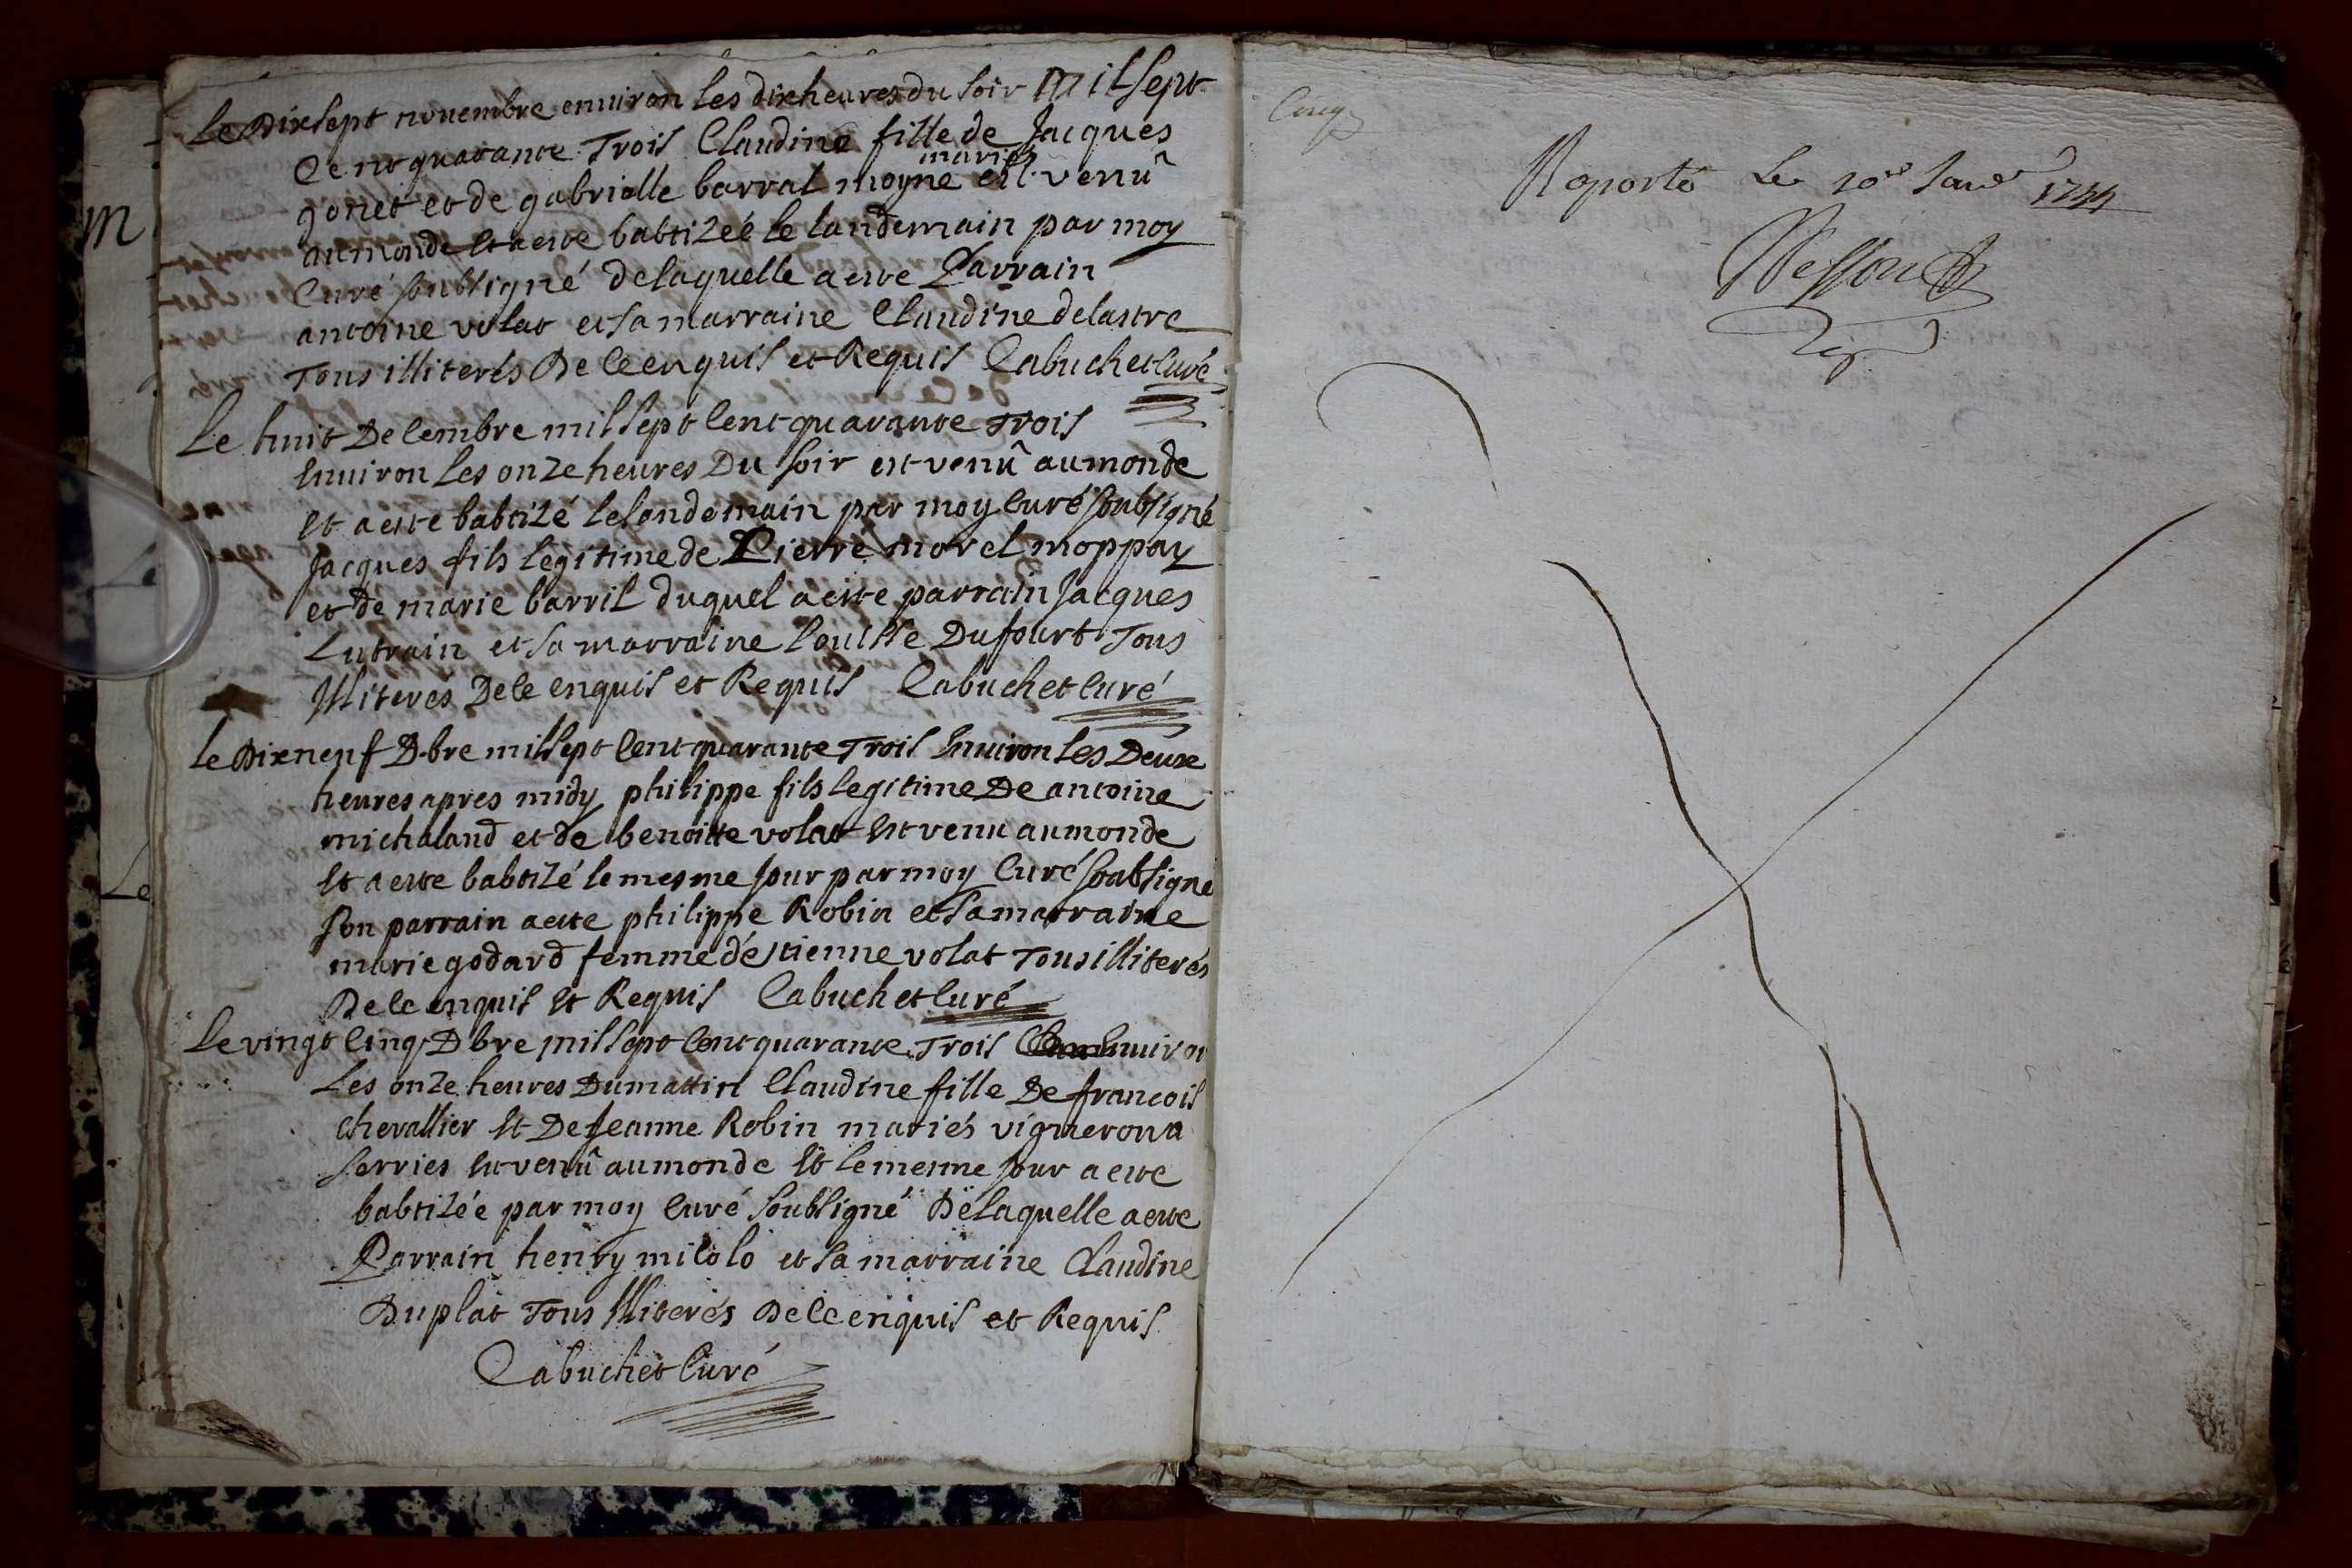 Le Dixsept novembre enuiron les dix heures du soir Mil sept
Cent quarante Trois Claudine fille de Jacques
gonet et de gabrielle barral moyne mariés est venû
au monde et a este babtizéé le landemain par moy
Curé soubsigné de laquelle a este Parrain
antoine volat et sa marraine Claudine delastre
Tous illiterés De Ce enquis et Requis Cabuchet Curé
Le huit Decembre mil sept Cent quarante Trois
Enuiron Les onze heures Du soir est venû au monde
Et a este babtizé le landemain par moy Curé soubsigné
Jacques fils legitime de Pierre morel moppay
et de marie barril duquel a este parrain Jacques
Lutrain et sa marraine Louisse Dufourt Tous
Illiteres De Ce enquis et Requis Cabuchet Curé
Le Dixneuf D.bre mil sept Cent quarante Trois Enuiron les Deuxe
heures apres midy philippe fils legitime De antoine
michaland et de benoitte volat Est venu au monde
Et a este babtizé le mesme Jour par moy Curé soubsigne
son parrain a este philippe Robin et sa marraine
marie godard femme d'éstienne volat Tous illiterés
De Ce enquis Et Requis Cabuchet Curé
Le vingt Cinq D bre mil sept Cent quarante Trois Enuiron
Les onze heures Du mattin Claudine fille De francois
Chevallier Et De Jeanne Robin mariés vigneron a
serries Est venû au monde Et le mesme Jour a este
babtizéé par moy Curé soubsigné De laquelle a este
Parrain henry micolo et sa marraine Claudine
Duplat Tous Illiterés De Ce enquis et Requis
Cabuchet Curé
M
Le
Cinq
Raporté Le 10e Janer 1744